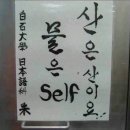 산은 산이요
물은 Self
白石大學 日本語科 米